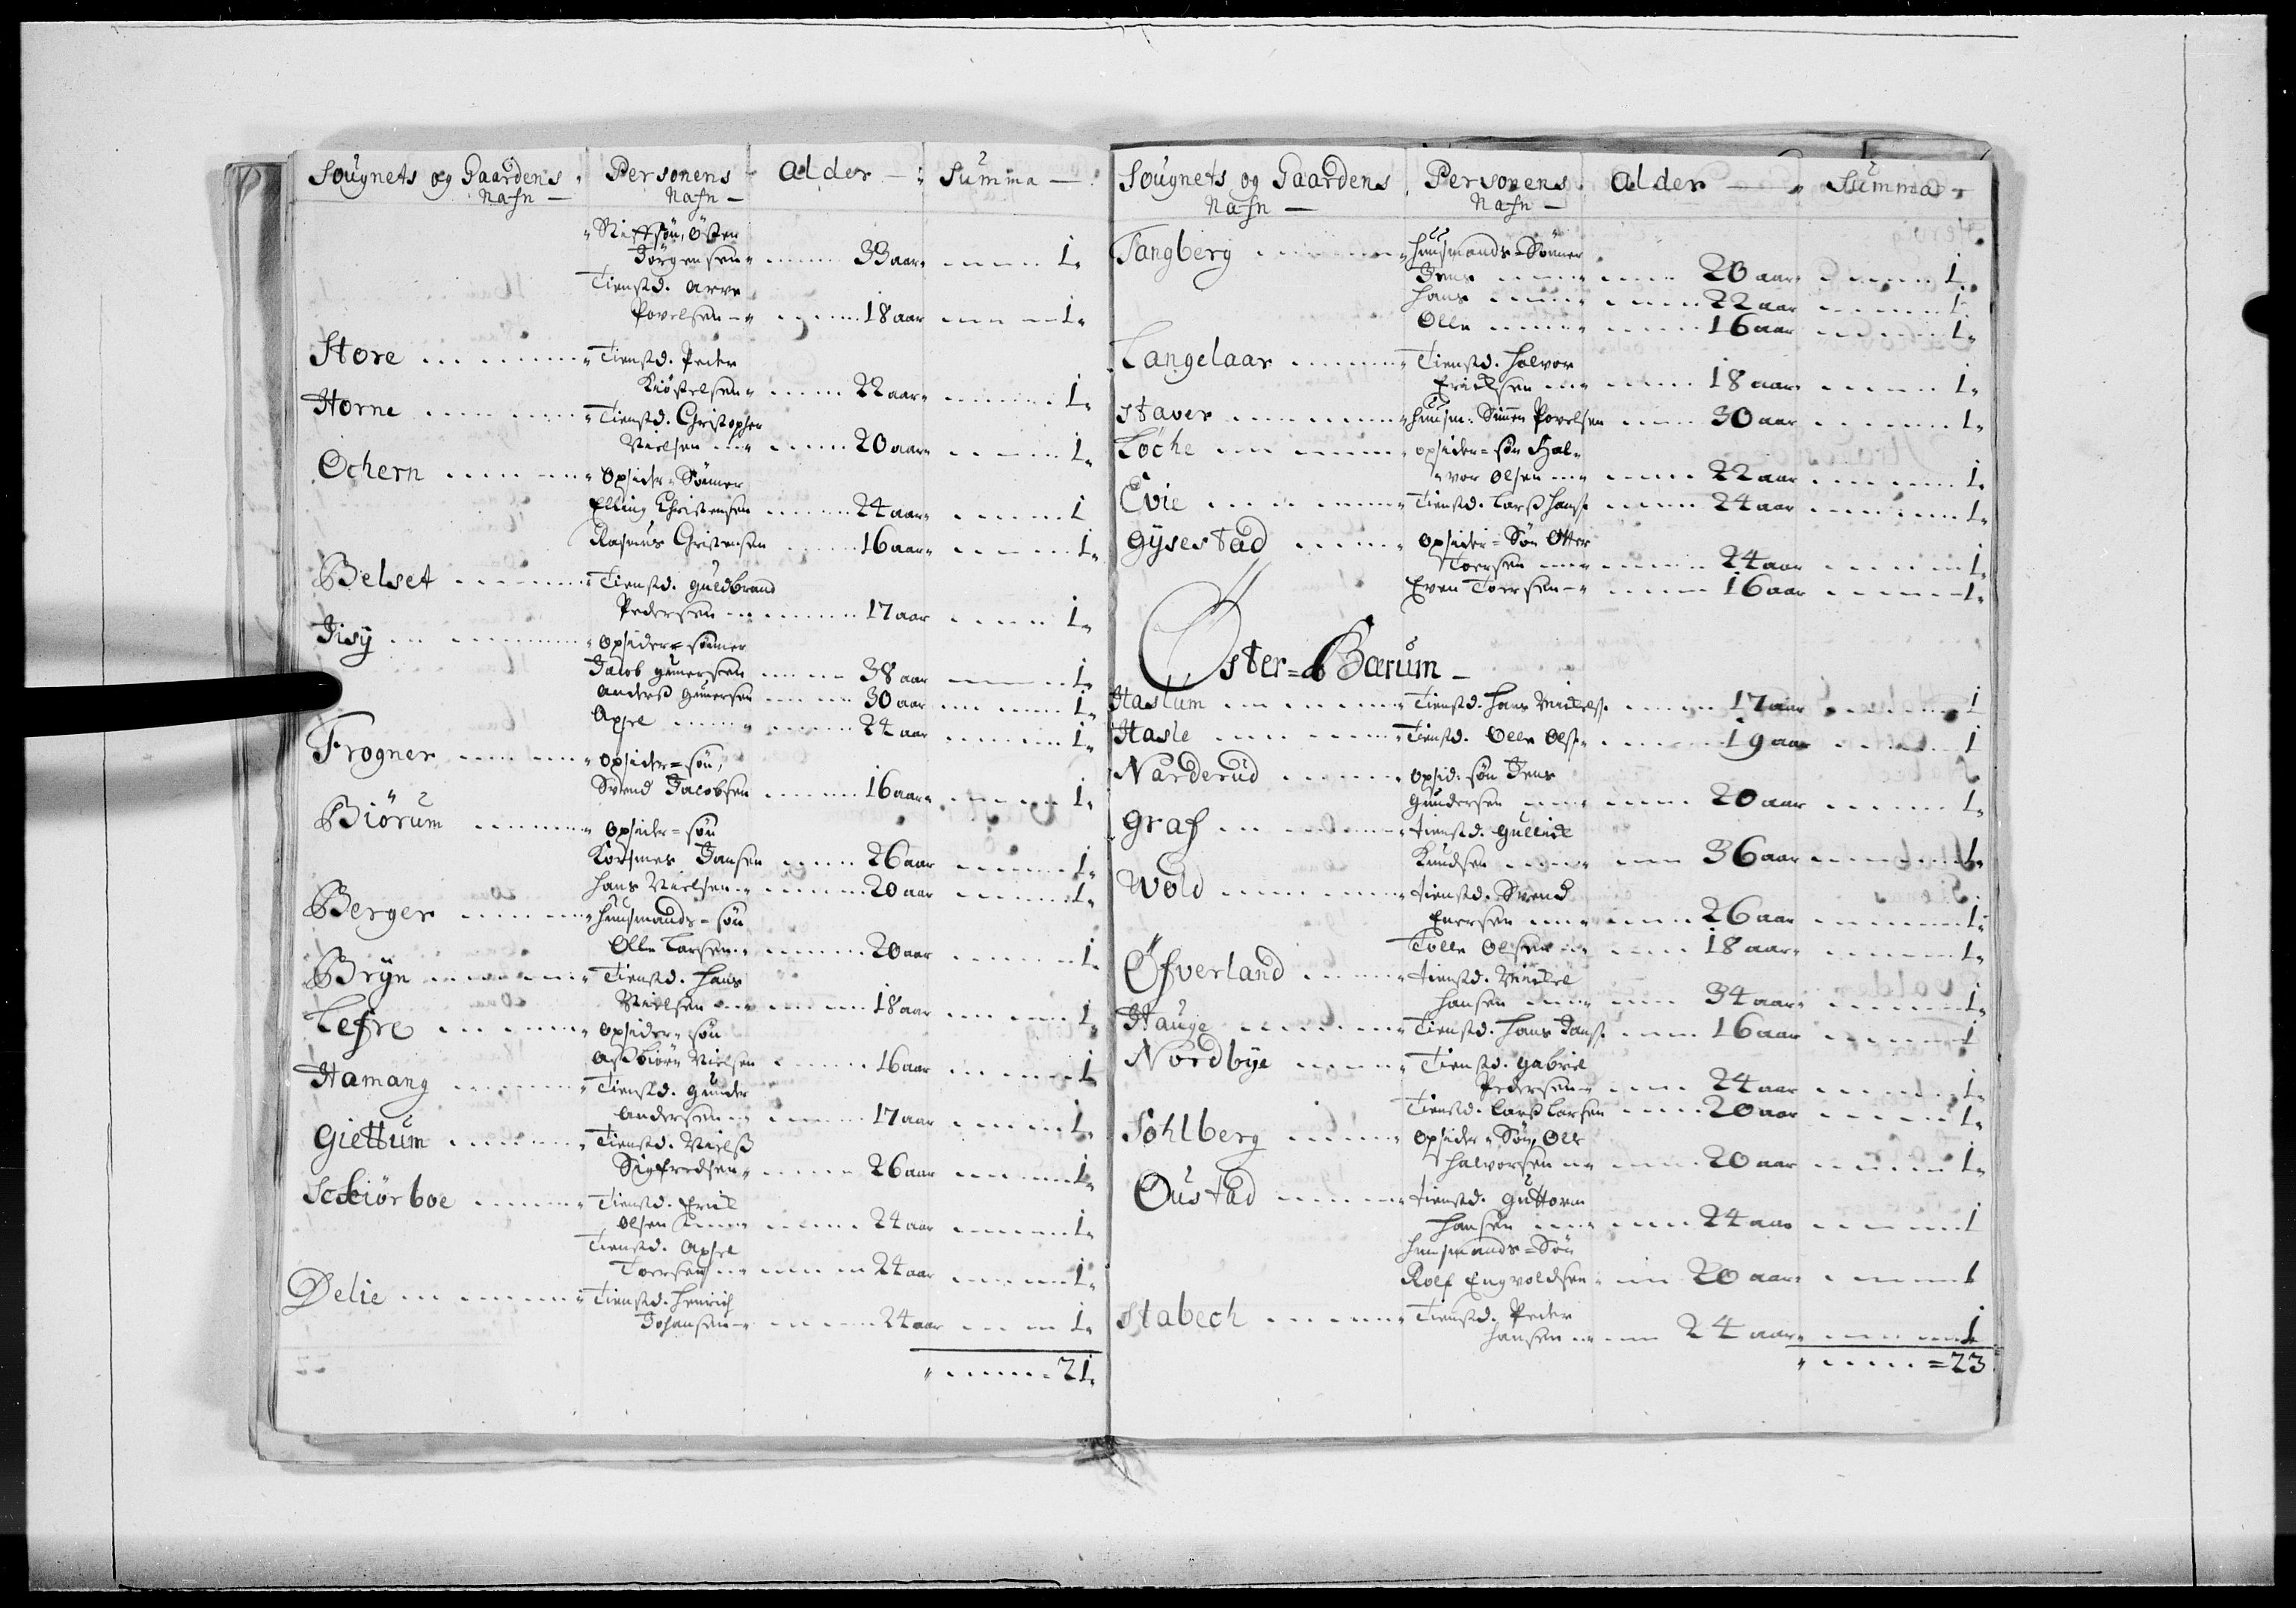 Sougnets og Gaardens
Nafn —
Personens
Nafn —
Alder —
Summa —
Stiffsøn, Østen
Jörgensen 33 aar 1
Tienstd. Arve
Povelsen 18 aar 1
Store Tienstd. Peder
Kiöstelsen 22 aar 1
Horne Tienstd. Christopher
Nielsen 20 aar 1
Ochern Opsider Sönner
Elling Christensen 24 aar 1
Rasmus Christensen 16 aar 1
Belset Tienstd. Guldbrand
Pedersen 17 aar 1
Jisÿ Opsider=sönner
Jacob Gunersen 38 aar 1
Anders Gunersen 30 aar 1
Apsel 24 aar 1
Frogner Opsider=søn,
Svend Jacobsen 16 aar 1
Biörum Opsider=søn
Jansen 26 aar 1
Hans Nielsen 20 aar 1
Berger Huusmands=søn
Olle Larsen 20 aar 1
Brÿn Tienstd. Hans
Nielsen 18 aar 1
Lefre Opsider søn
Asbiörn Nielsen 16 aar 1
Hamang Tienstd. Gunder
Andersen 17 aar 1
Giettum Tienstd. Nielß
Sigfredsen 26 aar 1
Sckiörboe Tienstd. Erick
Olsen 24 aar 1
Tienstd. Apsel
Toersen 24 aar 1
Delie Tienstd. Henrich
Johansen 24 aar 1
21
Sougnets og Gaardens
Nafn —
Personens
Nafn —
Alder —
Summa
Tangberg Huusmands=Sönner
Jens 20 aar 1
Hans 22 aar 1
Olle 16 aar 1
Langelaar Tienstd. Halvor
Ericksen 18 aar 1
Staver Huusm: Simen Povelsen 30 aar 1
Löche Opsider=søn Hal-
vor Olsen 22 aar 1
Evie Tienstd. Larß Hans. 24 aar 1
Gÿsestad Opsider=Søn Otter
Toersen 24 aar 1
Even Toersen 16 aar 1
Øster=Bærum —
Haslum Tienstd. Hans Nielss. 17 aar 1
Hasle Tienstd. Olle Ols. 19 aar 1
Narderud Opsid: søn Jens
Gundersen 20 aar 1
Graf tienstd. Gullick
Knudsen 36 aar 1
Wold tienstd. Svend
Enersen 26 aar 1
Tolle Olsen 18 aar 1
Öfverland tienstd. Mickel
Hansen 34 aar 1
Hauge Tienstd. Hans Jans. 16 aar 1
Nordbÿe Tienstd. Gabriel
Pedersen 24 aar 1
Tienstd. Larß Larsen 20 aar 1
Sohlberg Opsider Søn, Olle
Halvorsen 20 aar 1
Oustad tienstd. Guttorm
Hansen 24 aar 1
Huusmands=Søn
Rolf Engvoldsen 20 aar 1
Stabech Tienstd. Peder
Hansen 24 aar 1
=23